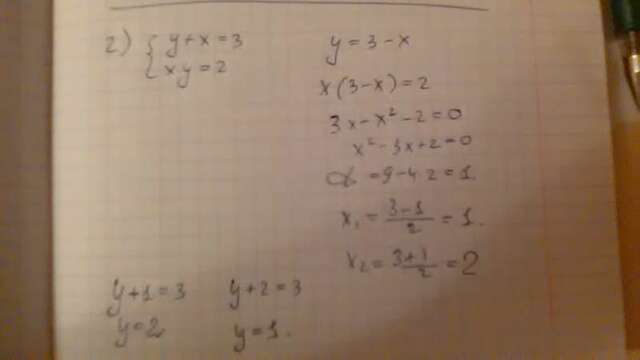 2) { y+x=3
xy=2
y=3-x
x(3-x)=2
3x-x²-2=0
x²-3x+2=0
D=9-4·2=1.
x₁=(3-1)/2=1.
x₂=(3+1)/2=2
y+1=3
y=2
y+2=3
y=1.